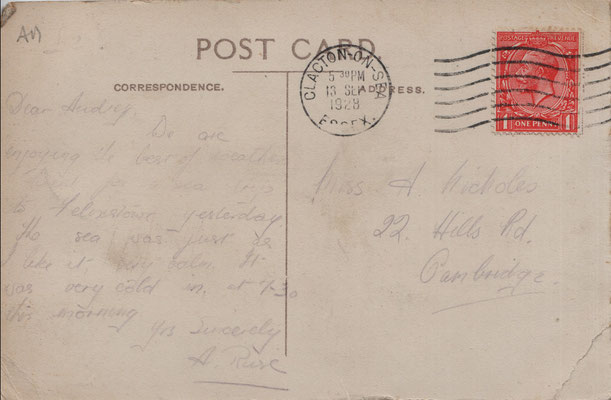 AN
POST CARD.
CORRESPONDENCE.
ADDRESS.
CLACTON-ON-SEA
5-30 PM
13 SEP
1928
ESSEX.
POSTAGE REVENUE
1 ONE PENNY 1
Dear Audrey,
We are
enjoying the best of weather
for a sea trip
to Felixstowe yesterday
The sea was just as
I like it, very calm. It
was very cold in, at 7-30
this morning
Yrs Sincerely
A. Rose
Miss A. Nicholes
22 Hills Rd.
Cambridge.